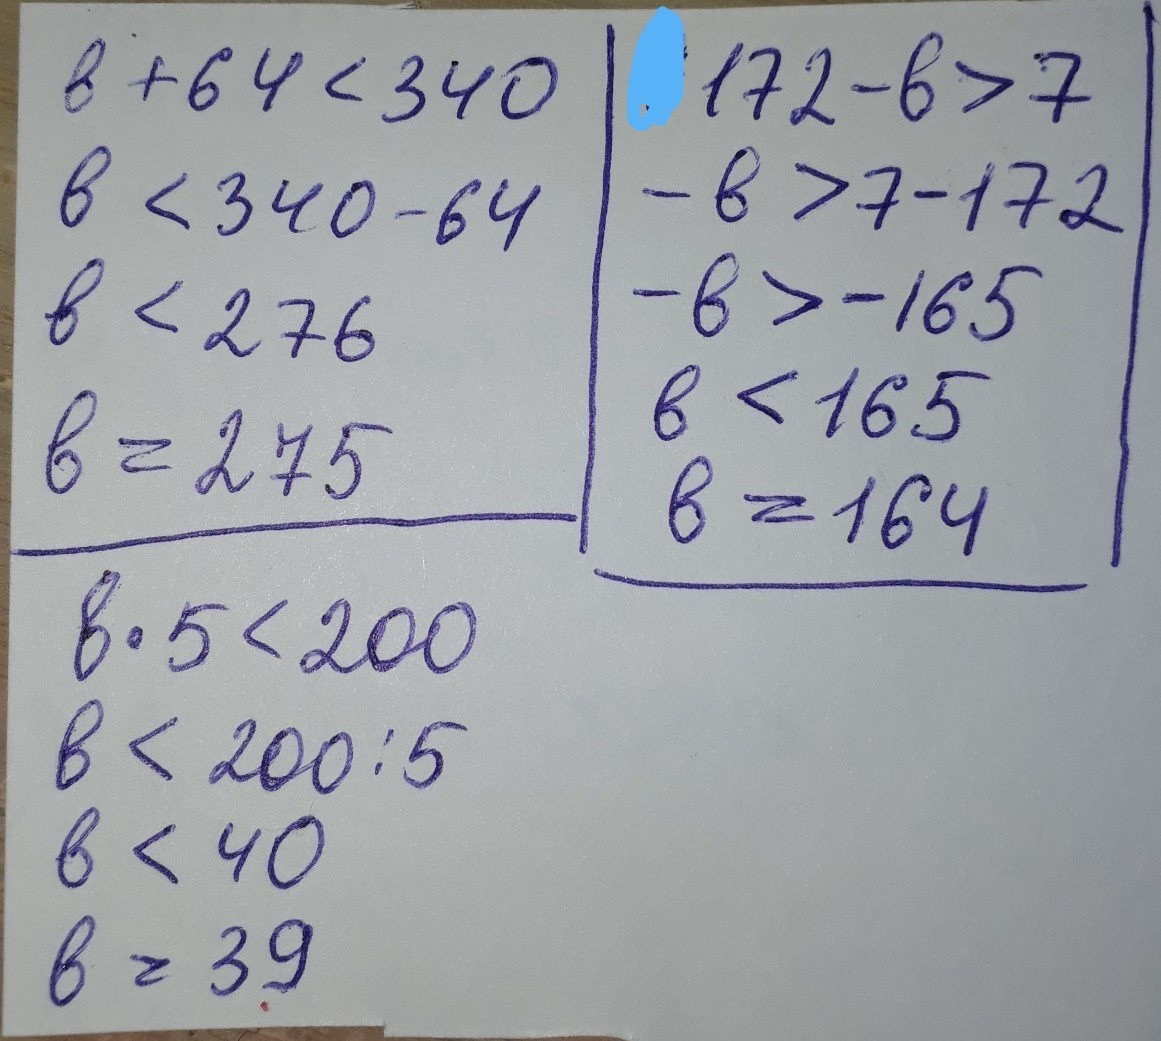 в + 64 < 340
в < 340 - 64
в < 276
в = 275
172 - в > 7
- в > 7 - 172
- в > - 165
в < 165
в = 164
в · 5 < 200
в < 200 : 5
в < 40
в = 39